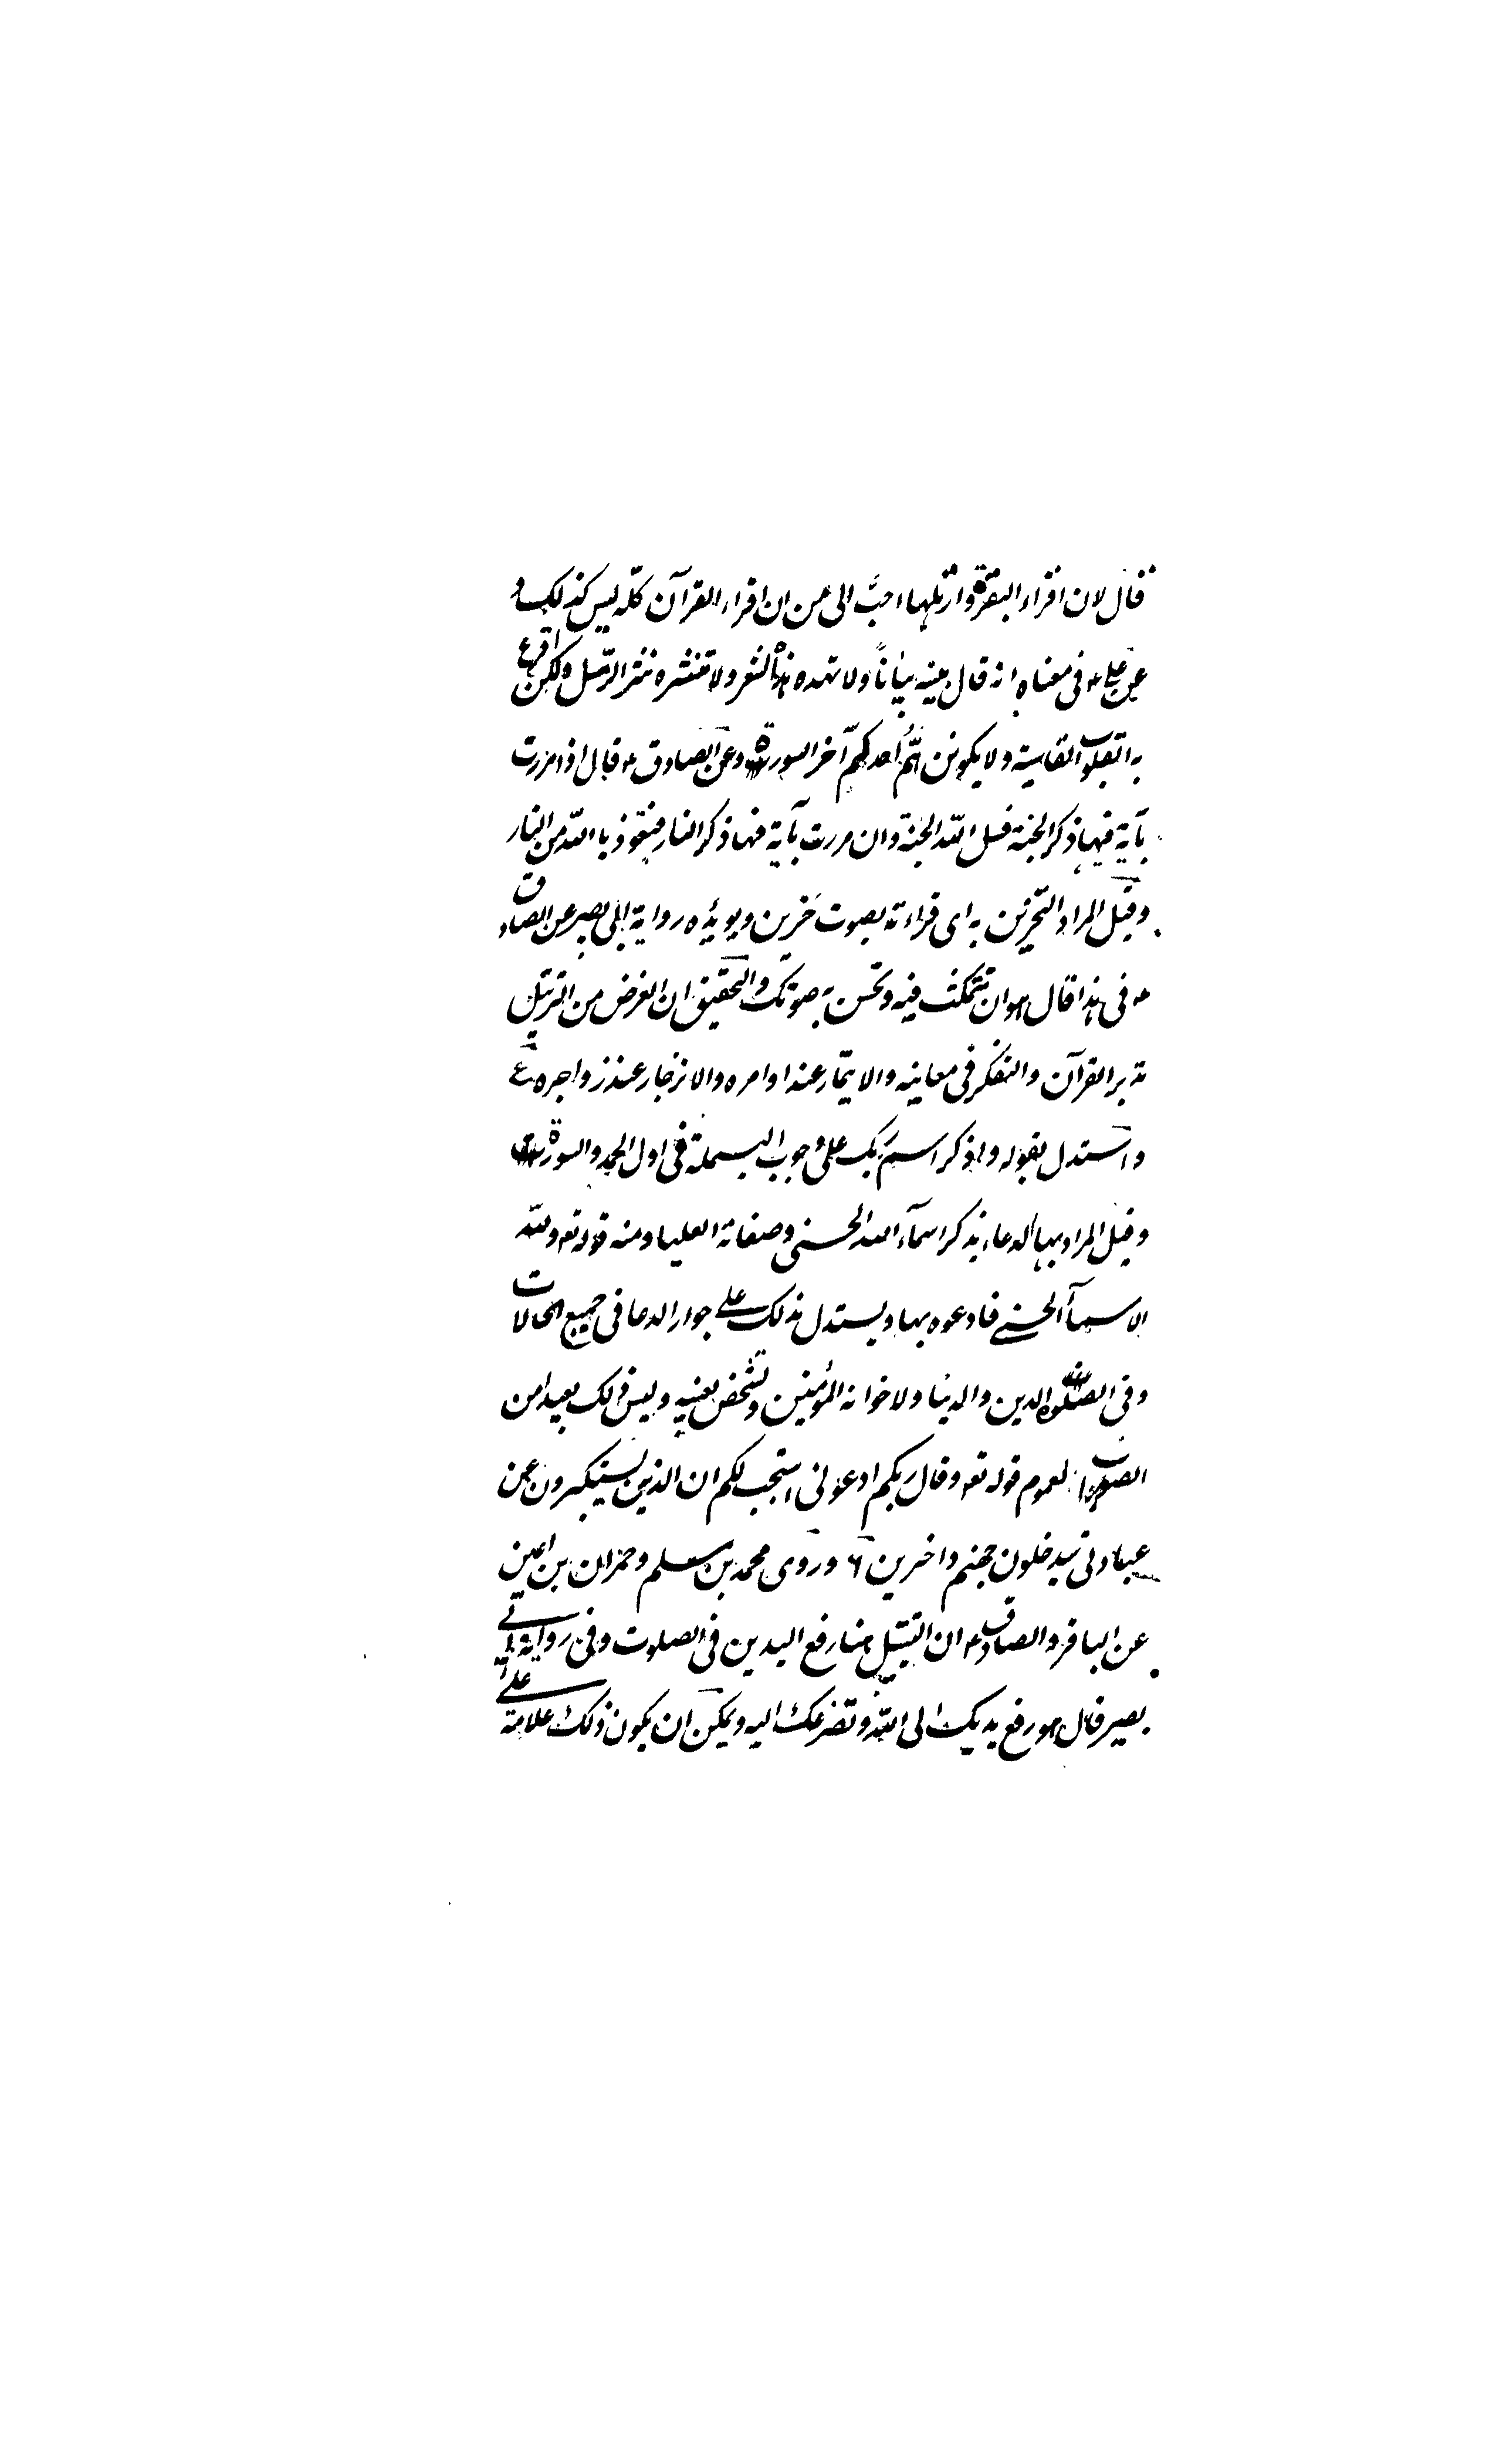 قال لان اقراء البقرة وارتلها احبّ الى من ان اقراء القرآن كلّه ليس كذلك و
عن على ء فى معناه انه قال بينه بياناً ولا تهذه هذّ الشعر ولا تنثره نثر الرّمل ولكن اقرع
به القلوب القاسية ولا يكونن همُّ احدكم آخر السورة وعن الصادق ء قال اذا مررت
بآية فيها ذكر الجنة فسل الله الجنة وان مررت بآية فيها ذكر النار فتعوذ بالله من النار
وقيل المراد التحزين به اى قراءته بصوت حزين ويؤيده رواية ابى بصير عن الصادق
ء فى هذا قال هو ان تتمكث فيه وتحسن به صوتك والتحقيق ان الغرض من الترتيل
تدبر القرآن والتفكر فى معانيه والايتمار عند اوامره والانزجار عند زواجره
واستدل بقوله واذكر اسم ربك على وجوب البسملة فى اول الحمد والسورة
وقيل المراد بها الدعاء بذكر اسمآء الله الحسنى وصفاته العليا ومنه قوله تعه ولله
الاسمآء الحسنى فادعوه بها ويستدل بذلك على جواز الدعا فى جميع الحالات
وفى الصلوة للدين والدنيا ولاخوانه المؤمنين ولشخص بعينه وليس ذلك بعيدا من
الصواب لعموم قوله تعه وقال ربكم ادعونى استجب لكم ان الذين يستكبرون عن
عبادتى سيدخلون جهنم داخرين ٦ وروى محمد بن مسلم وحمران بن اعين
عن الباقر والصادق ء ان التبتل هنا رفع اليدين فى الصلوت وفى رواية ابى
بصير قال هو رفع يديك الى الله وتضرعك اليه ويمكن ان يكون ذلك علامة على